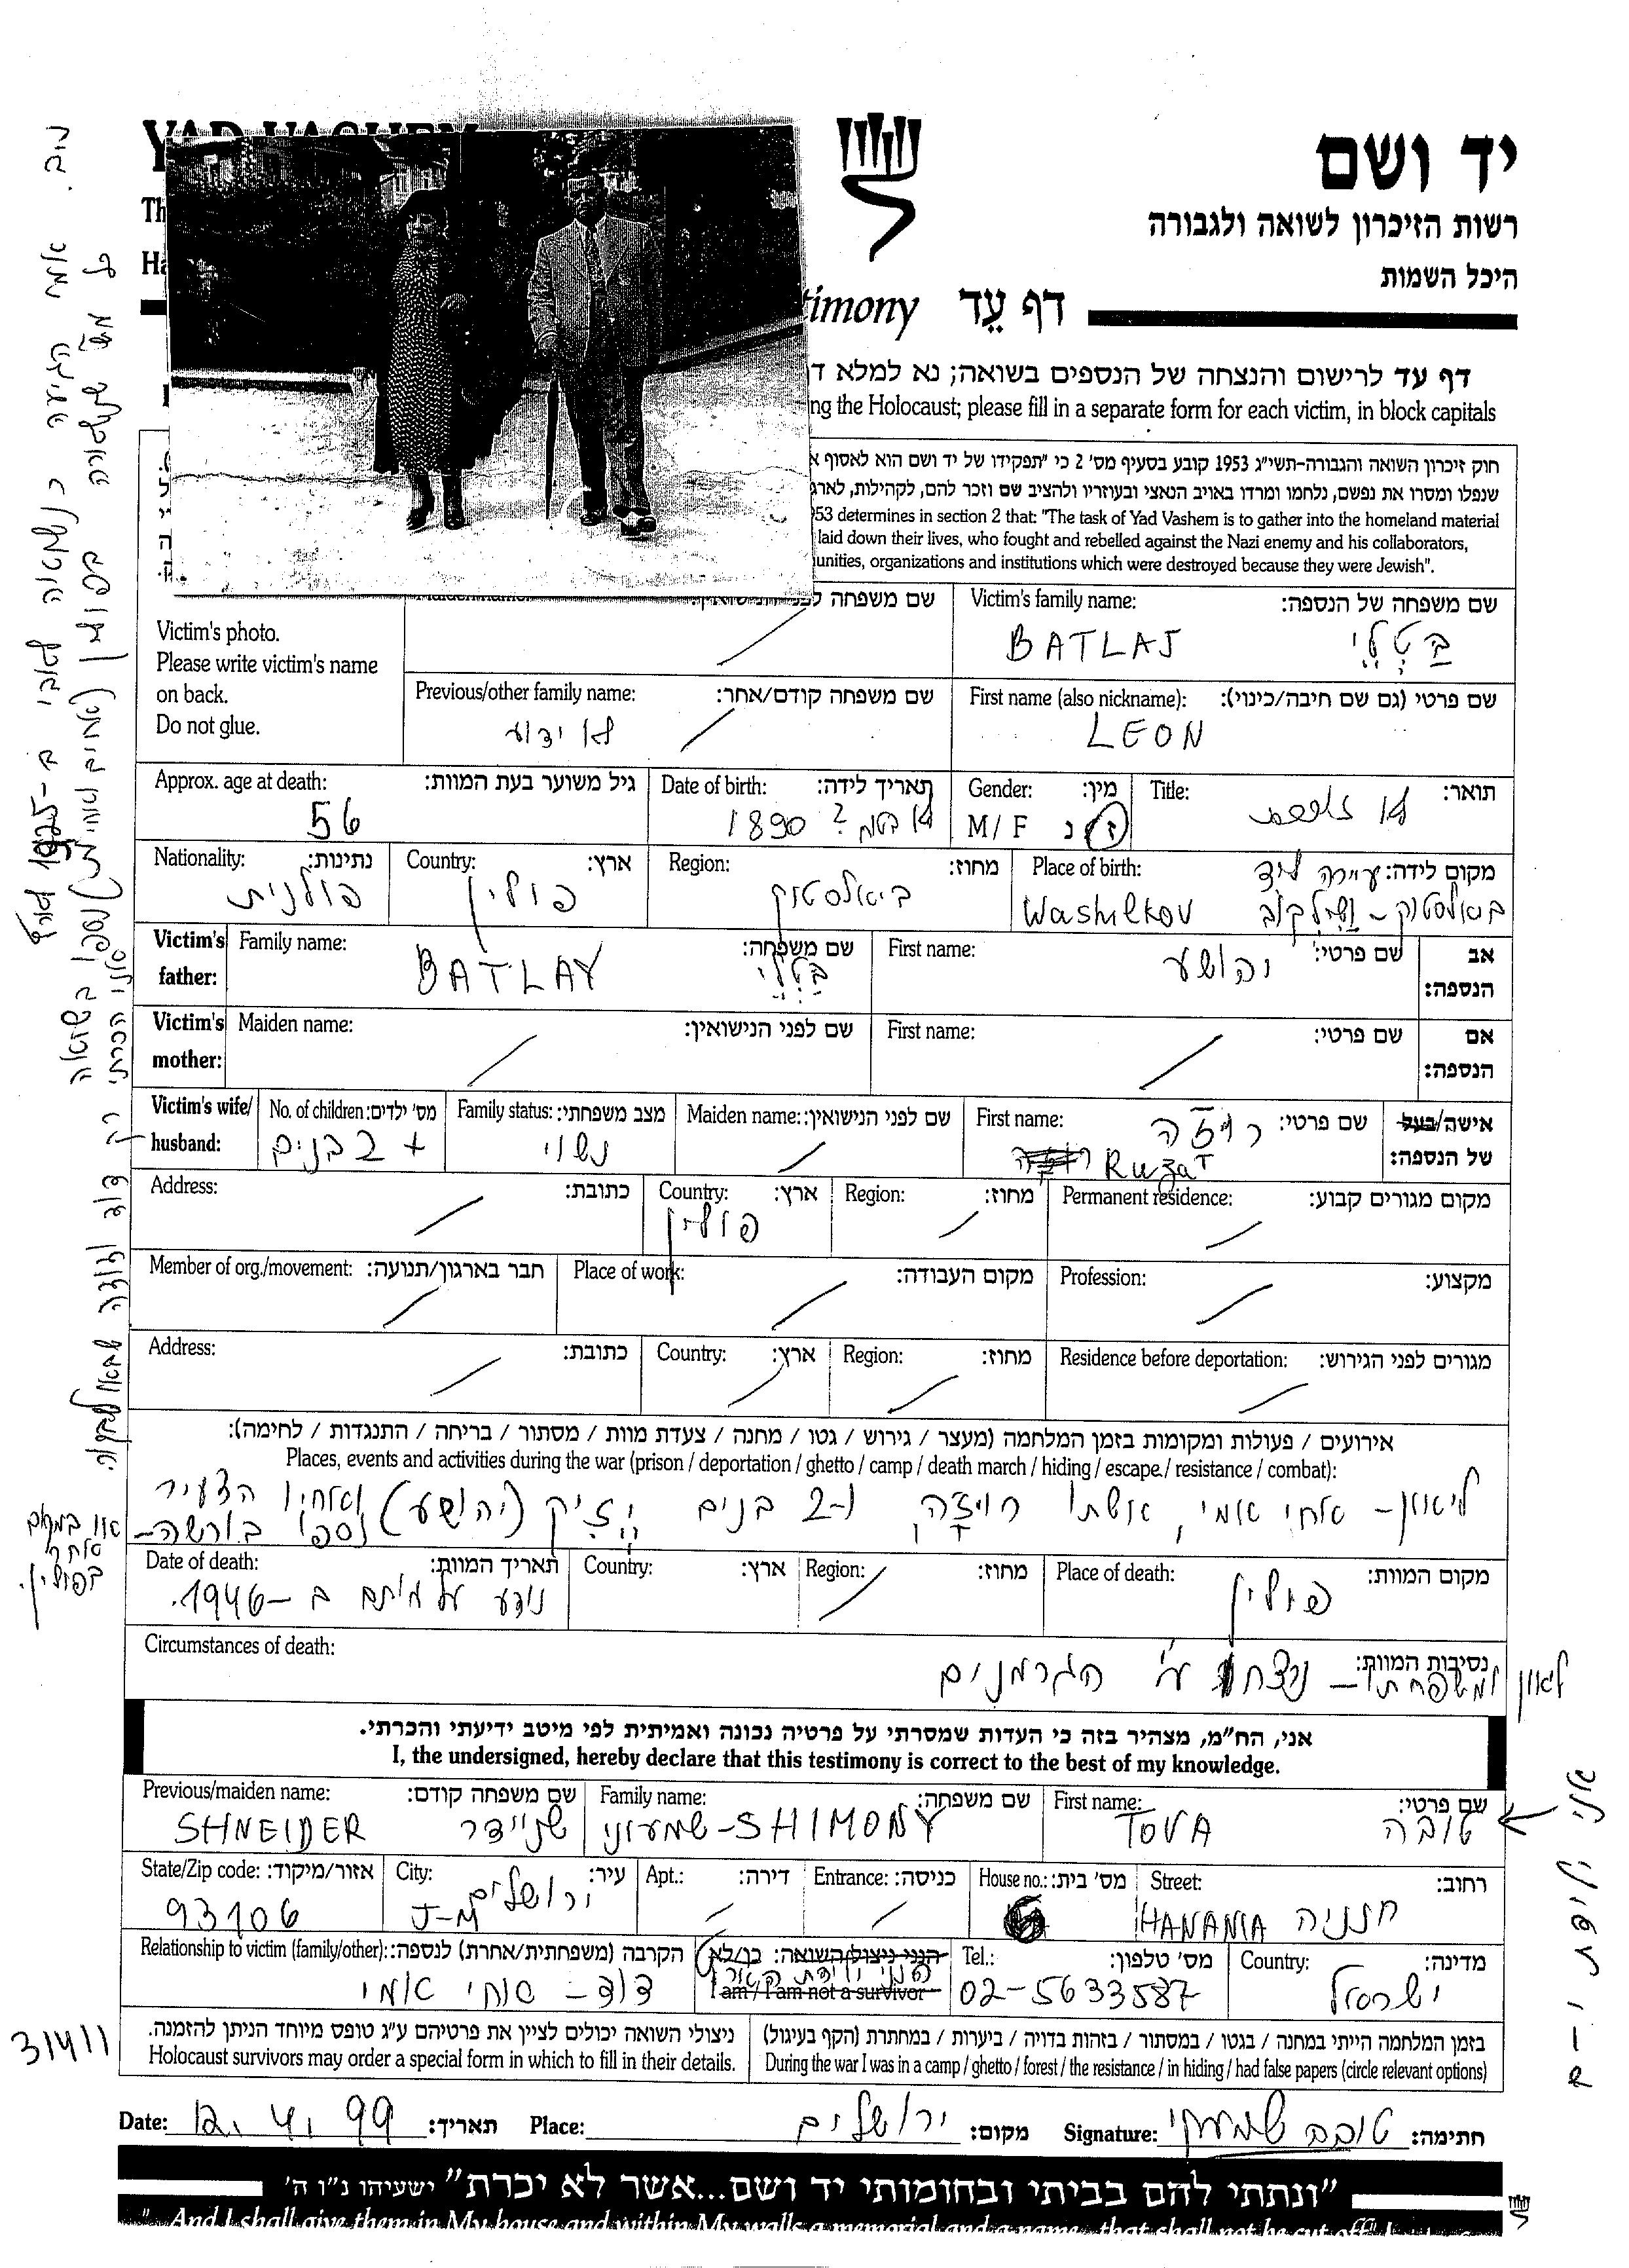 יד ושם
רשות הזיכרון לשואה ולגבורה
היכל השמות
דף עֵד timony
דף עד לרישום והנצחה של הנספים בשואה; נא למלא
ng the Holocaust; please fill in a separate form for each victim, in block capitals
חוק זיכרון השואה והגבורה-תשי"ג 1953 קובע בסעיף מס' 2 כי "תפקידו של יד ושם הוא לאסוף
שנפלו ומסרו את נפשם, נלחמו ומרדו באויב הנאצי ובעוזריו ולהציב שם וזכר להם, לקהילות,
53 determines in section 2 that: "The task of Yad Vashem is to gather into the homeland material
laid down their lives, who fought and rebelled against the Nazi enemy and his collaborators,
unities, organizations and institutions which were destroyed because they were Jewish".
Victim's family name: שם משפחה של הנספה:
BATLAJ בַּטְלַיִ
Victim's photo.
Please write victim's name
on back.
Do not glue.
Previous/other family name: שם משפחה קודם/אחר:
לא ידוע
First name (also nickname): שם פרטי (גם שם חיבה/כינוי):
LEON
Approx. age at death: גיל משוער בעת המוות:
56
Date of birth: תאריך לידה:
1890 ? לא בטוח
Gender: מין:
M / F ז נ
Title: תואר:
Nationality: נתינות:
פולנית
Country: ארץ:
פולין
Region: מחוז:
ביאלסטוק
Place of birth: מקום לידה:
עיירה ליד
Washilkov
Victim's father: אב הנספה:
Family name: שם משפחה:
BATLAY בַּטְלַיִ
First name: שם פרטי:
יהושע
Victim's mother: אם הנספה:
Maiden name: שם לפני הנישואין:
First name: שם פרטי:
Victim's wife/husband: אישה/בעל של הנספה:
No. of children: מס' ילדים:
+ 2 בנים
Family status: מצב משפחתי:
נשוי
Maiden name: שם לפני הנישואין:
First name: שם פרטי:
רוזה
Ruza
Address: כתובת:
Country: ארץ:
פולין
Region: מחוז:
Permanent residence: מקום מגורים קבוע:
Member of org./movement: חבר בארגון/תנועה:
Place of work: מקום העבודה:
Profession: מקצוע:
Address: כתובת:
Country: ארץ:
Region: מחוז:
Residence before deportation: מגורים לפני הגירוש:
אירועים / פעולות ומקומות בזמן המלחמה (מעצר / גירוש / גטו / מחנה / צעדת מוות / מסתור / בריחה / התנגדות / לחימה):
Places, events and activities during the war (prison / deportation / ghetto / camp / death march / hiding / escape / resistance / combat):
ליאון - אחי אמי, אשתו רוזה ו-2 בנים (יהושע) ואחיו הצעיר
נספו בורשה-
או במקום
אחר
בפולין.
Date of death: תאריך המוות:
נודע על מותם ב-1946.
Country: ארץ:
Region: מחוז:
Place of death: מקום המוות:
פולין
Circumstances of death: נסיבות המוות:
לאון ומשפחתו - נרצחו ע"י הגרמנים
אני, הח"מ, מצהיר בזה כי העדות שמסרתי על פרטיה נכונה ואמיתית לפי מיטב ידיעתי והכרתי.
I, the undersigned, hereby declare that this testimony is correct to the best of my knowledge.
Previous/maiden name: שם משפחה קודם:
SHNEIDER שניידר
Family name: שם משפחה:
שמעוני-SHIMONY
First name: שם פרטי:
TOVA טובה
State/Zip code: אזור/מיקוד:
93106
City: עיר:
J-M ירושלים
Apt.: דירה:
Entrance: כניסה:
House no.: מס' בית:
Street: רחוב:
HANANIA חנניה
Relationship to victim (family/other): הקרבה (משפחתית/אחרת) לנספה:
דוד - אחי אמי
הנני ניצול השואה: כן/לא
הנני ילידת הארץ
I am / I am not a survivor
Tel.: מס' טלפון:
02-5633587
Country: מדינה:
ישראל
אני ילידת י-ם
ניצולי השואה יכולים לציין את פרטיהם ע"ג טופס מיוחד הניתן להזמנה.
Holocaust survivors may order a special form in which to fill in their details.
בזמן המלחמה הייתי במחנה / בגטו / במסתור / בזהות בדויה / ביערות / במחתרת (הקף בעיגול)
During the war I was in a camp / ghetto / forest / the resistance / in hiding / had false papers (circle relevant options)
Date: 12.4.99 תאריך:
Place: ירושלים מקום:
Signature: טובה שמעוני חתימה:
"ונתתי להם בביתי ובחומותי יד ושם...אשר לא יכרת" ישעיהו נ"ו ה'
"...And I shall give them in My house and within My walls a memorial and a name...that shall not be cut off"